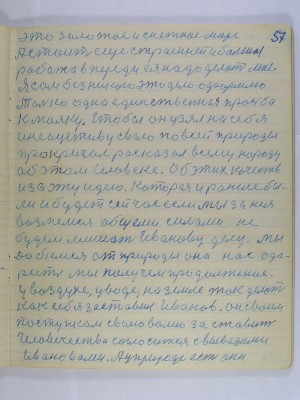 57
это золотое и снежное море
А стоит еще страшней и большая
работа впереди ея надо делать мне
Я сам без никого это дело одолею
Только одна единственная просьба
к моляку, чтобы он узял на себя
инециетиву своло по всей природы
прокричал росказал всему народу
об этом человеке. Об этих качеств
из за эту идею. Которая и раньше бы-
ли и будет сейчас если мы за нея
возмемся общеми силами не
будем мешать Иванову делу. мы
добьемся от природы она нас ода-
рит и мы получем продолжения.
у воздухе, у воде, на земле так делать
как себя заставил Иванов. он своим
поступком свою волю заставит
человечества согласится с выводами
Ивановами. А у природе есть они